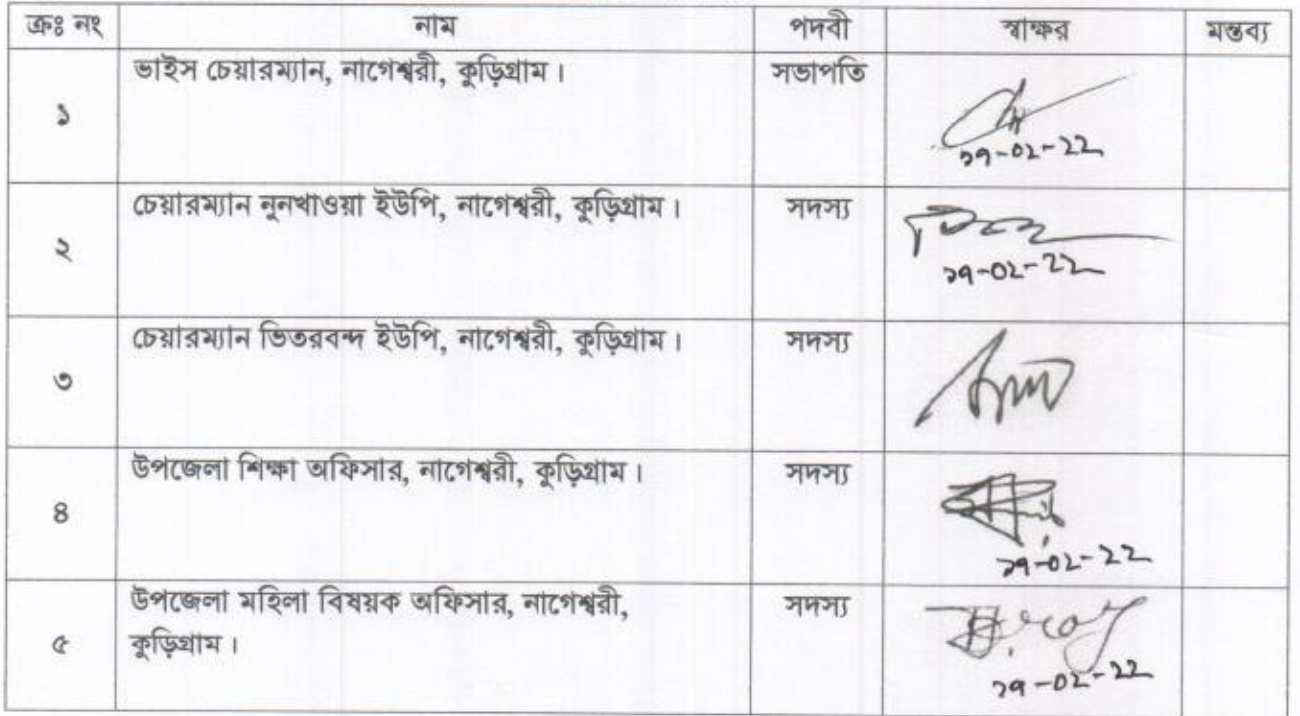 ক্রঃ নং নাম পদবী স্বাক্ষর মন্তব্য
১ ভাইস চেয়ারম্যান, নাগেশ্বরী, কুড়িগ্রাম। সভাপতি
২৭-০২-২২
২ চেয়ারম্যান নুনখাওয়া ইউপি, নাগেশ্বরী, কুড়িগ্রাম। সদস্য
২৭-০২-২২
৩ চেয়ারম্যান ভিতরবন্দ ইউপি, নাগেশ্বরী, কুড়িগ্রাম। সদস্য
৪ উপজেলা শিক্ষা অফিসার, নাগেশ্বরী, কুড়িগ্রাম। সদস্য
২৭-০২-২২
৫ উপজেলা মহিলা বিষয়ক অফিসার, নাগেশ্বরী, সদস্য
কুড়িগ্রাম।
২৭-০২-২২